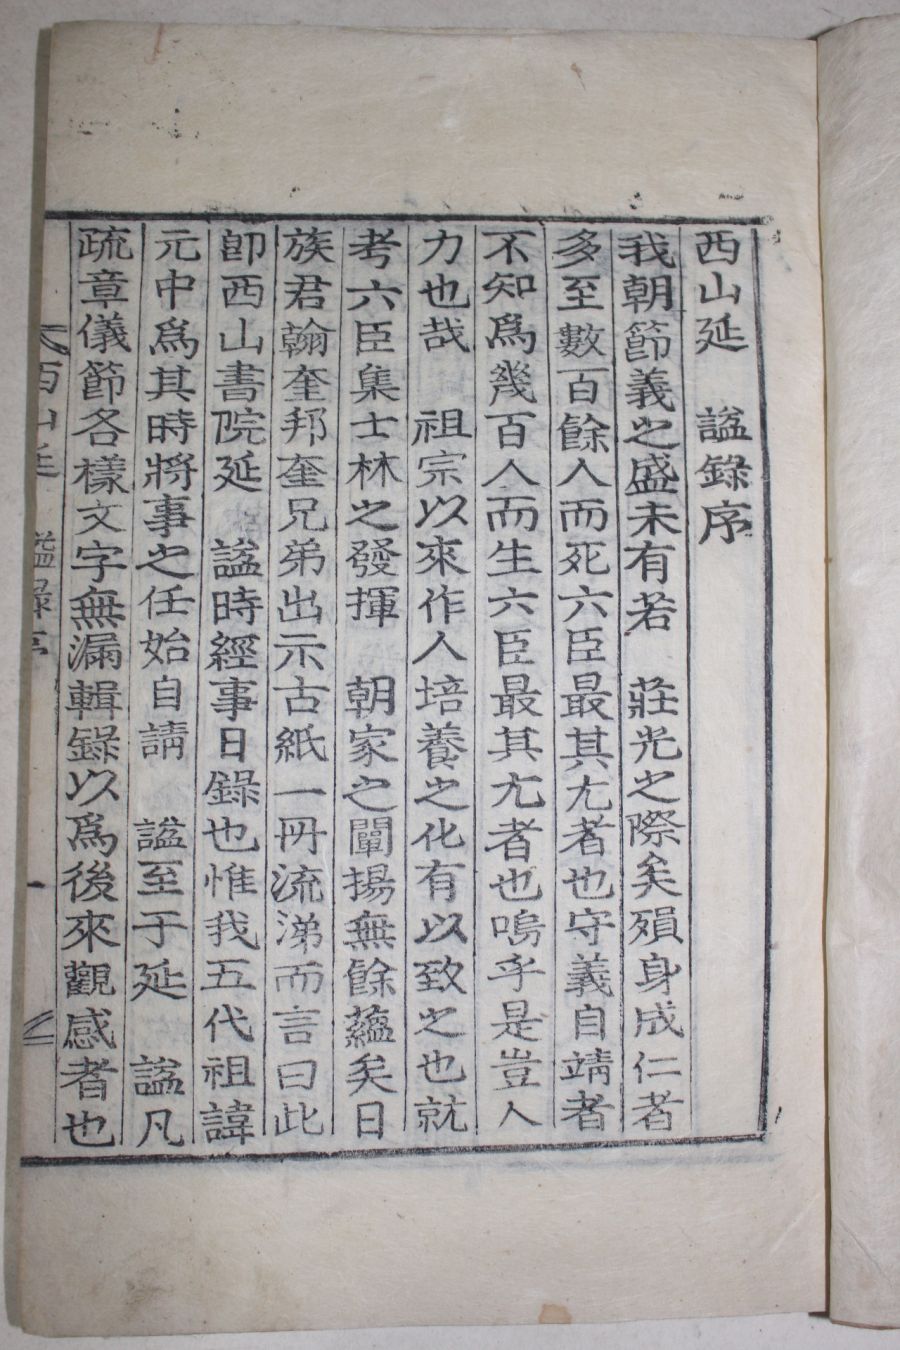 西山延　諡錄序
我朝節義之盛未有若　莊光之際矣殞身成仁者
多至數百餘人而死六臣最其尤者也守義自靖者
不知爲幾百人而生六臣最其尤者也嗚乎是豈人
力也哉　祖宗以來作人培養之化有以致之也就
考六臣集士林之發揮　朝家之闡揚無餘蘊矣日
族君翰奎邦奎兄弟出示古紙一冊流涕而言曰此
卽西山書院延　諡時經事日錄也惟我五代祖諱
元中爲其時將事之任始自請　諡至于延　諡凡
疏章儀節各樣文字無漏輯錄以爲後來觀感者也
西山延　諡錄序
一